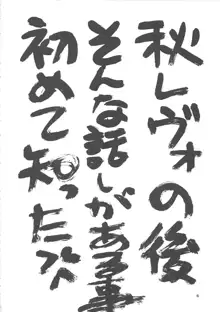 秋レヴォの後
そんな話しがある事
初めて知った